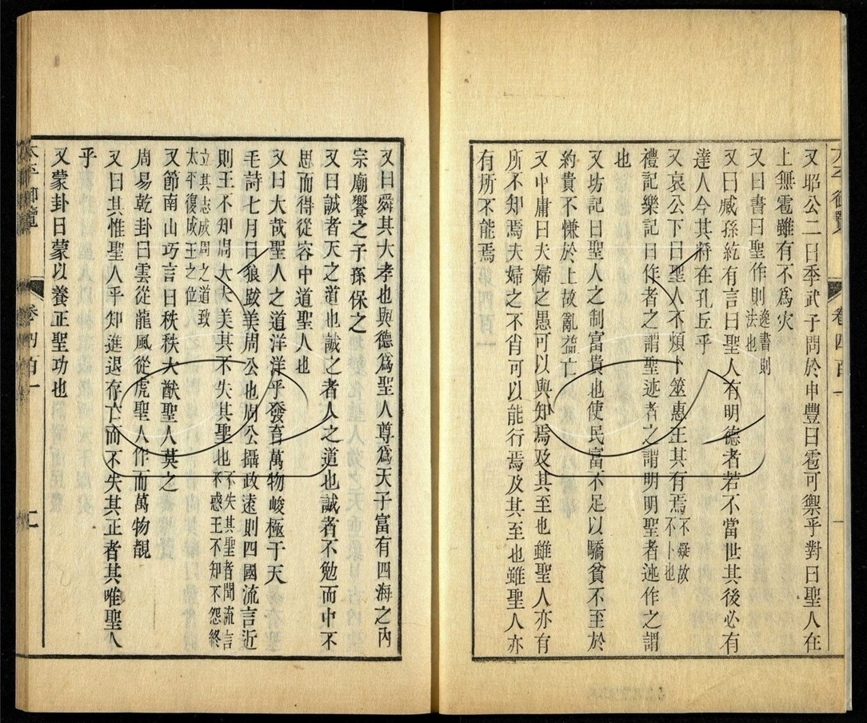 太平御覽 卷四百一
又昭公二曰季武子問於申豐曰雹可禦乎對曰聖人在
上無雹雖有不爲災
又曰書曰聖作則逸書則法也
又曰臧孫紇有言曰聖人有明德者若不當世其後必有
達人今其將在孔丘乎
又哀公下曰聖人不煩卜筮惠王其有焉不疑故不卜也
禮記樂記曰作者之謂聖述者之謂明明聖者述作之謂
也
又坊記曰聖人之制富貴也使民富不足以驕貧不至於
約貴不慊於上故亂益亡
又中庸曰夫婦之愚可以與知焉及其至也雖聖人亦有
所不知焉夫婦之不肖可以能行焉及其至也雖聖人亦
有所不能焉
又曰舜其大孝也與德爲聖人尊爲天子富有四海之內
宗廟饗之子孫保之
又曰誠者天之道也誠之者人之道也誠者不勉而中不
思而得從容中道聖人也
又曰大哉聖人之道洋洋乎發育萬物峻極于天
毛詩七月曰狼跋美周公也周公攝政遠則四國流言近
則王不知周大夫美其不失其聖也不失其聖者聞流言不惑王不知不怨終
立其志成周之道致太平復成王之位
又節南山巧言曰秩秩大猷聖人莫之
周易乾卦曰雲從龍風從虎聖人作而萬物覩
又曰其惟聖人乎知進退存亡而不失其正者其唯聖人
乎
又蒙卦曰蒙以養正聖功也
太平御覽 卷四百一 二